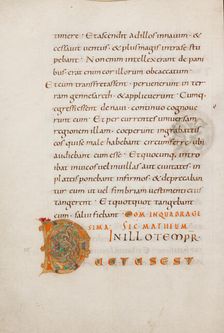 timere. Et ascendit ad illos in navim &
cessavit ventus & plus magis intra se stu
pebant. Non enim intellexerant de pani
bus. erat enim cor illorum obcaecatum.
Et cum transfretassent. pervenerunt in ter
ram gennesareth. & applicuerunt. Cumq.
egressi essent de navi. continuo cognove
runt eum. Et per currentes universam
regionem illam. coeperunt in grabattis
eos qui se male habebant circumferre. ubi
audiebant eum esse. Et quocumq. intro
ibat in vicos vel in villas aut civitates. in
plateis ponebant infirmos. & depreca
bantur eum. ut vel fimbriam vestimenti eius
tangerent. Et quotquot tangebant
eum. salvi fiebant. DOM. IN QUADRAGE
SIMA SEC. MATHEUM
IN ILLO TEMPR.
DUCTUS EST